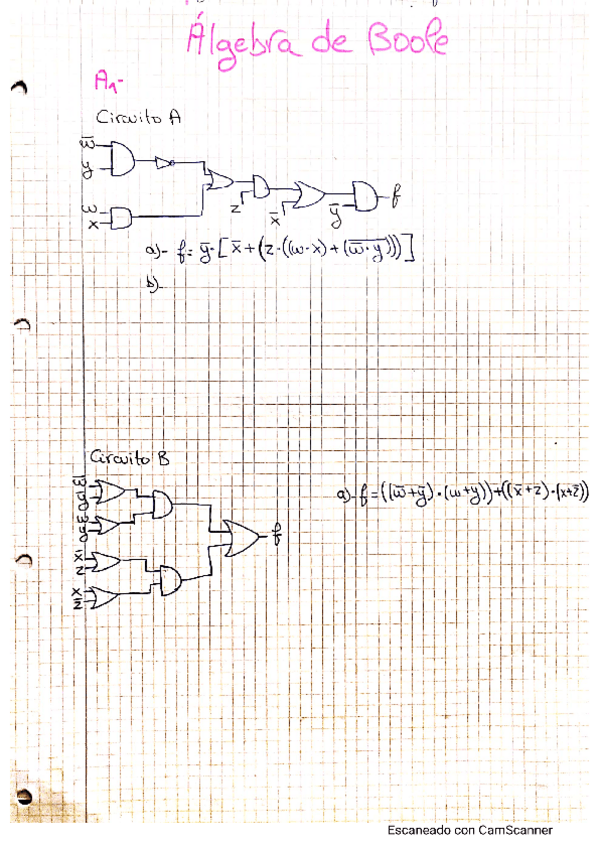 Álgebra de Boole
A₁-
Circuito A
w̅
y
w
x
z
x̅
y̅
f
a)- f = y̅·[x̅+(z·((w·x)+(\overline{w̅·y})))]
b)-
Circuito B
w̅
y̅
w
y
x̅
z
x
z̅
f
a)- f = ((w̅+y̅)·(w+y))+((x̅+z)·(x+z̅))
Escaneado con CamScanner